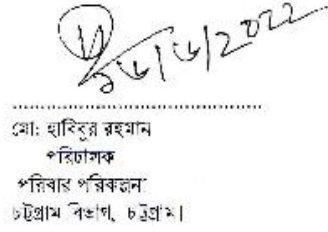 মো: হাবিবুর রহমান
পরিচালক
পরিবার পরিকল্পনা
চট্টগ্রাম বিভাগ, চট্টগ্রাম।